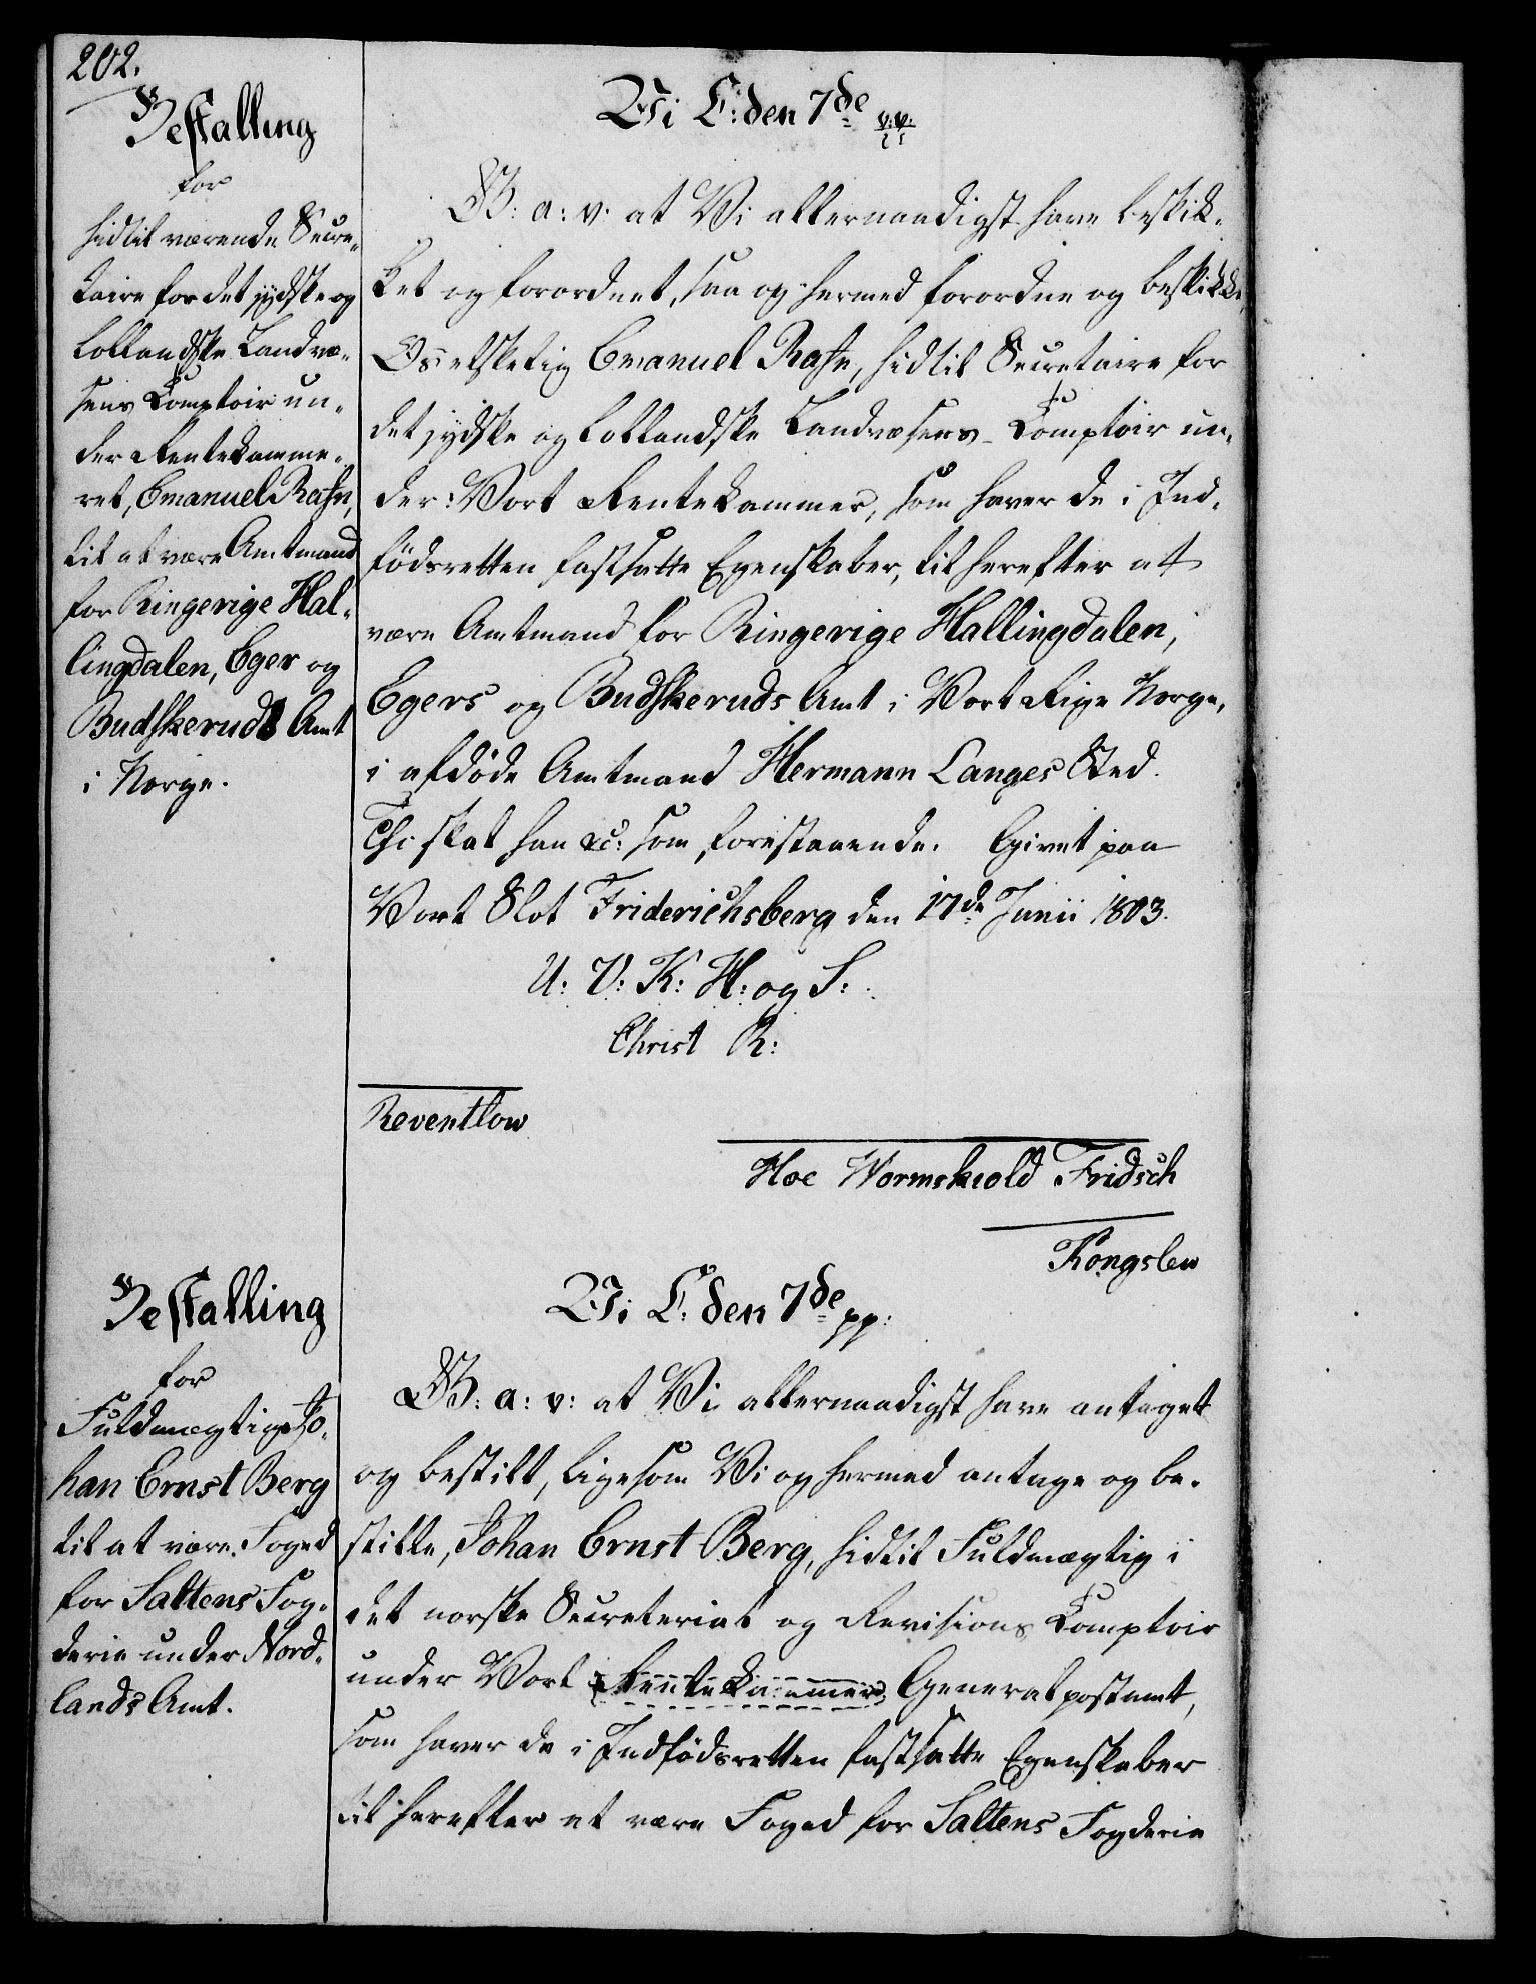 202.
Bestalling
for
hidtil værende Secre-
taire for det jydske og
Lollandske Landvæ-
sens Comptoir un-
der Rentekamme-
ret, Emanuel Rafn,
til at være Amtmand
for Ringerige Hal-
lingdalen, Eger og
Budskeruds Amt
i Norge.
Vi C: den 7de p:p:
G: a: v: at Vi allernaadigst have beskik-
ket og forordnet, saa og hermed forordne og beskikke,
Os elskelig Emanuel Rafn, hidtil Secretaire for
det jydske og Lollandske Landvæsens-Comptoir un-
der Vort Rentekammer, som haver de i Ind-
födsretten fastsatte Egenskaber, til herefter at
være Amtmand for Ringerige Hallingdalen,
Egers og Budskeruds Amt i Vort Rige Norge,
i afdöde Amtmand Hermann Langes Sted.
Thi skal han &c: som forestaaende. Givet paa
Vort Slot Friderichsberg den 17de Junii 1803.
U: V: K: H: og S:
Christ R:
Reventlow
Hoe Wormskiold Fridsch
Kongslew
Bestalling
for
Fuldmægtig Jo-
han Ernst Berg
til at være Foged
for Saltens Fog-
derie under Nord-
lands Amt.
Vi C: den 7de pp:
G: a: v: at Vi allernaadigst have antaget
og bestilt, ligesom Vi og hermed antage og be-
stille, Johan Ernst Berg, hidtil Fuldmægtig i
det norske Secreteriat og Revisions Comptoir
under Vort Rentekammer, Generalpostamt,
som haver de i Indfödsretten fastsatte Egenskaber
til herefter at være Foged for Saltens Fogderie